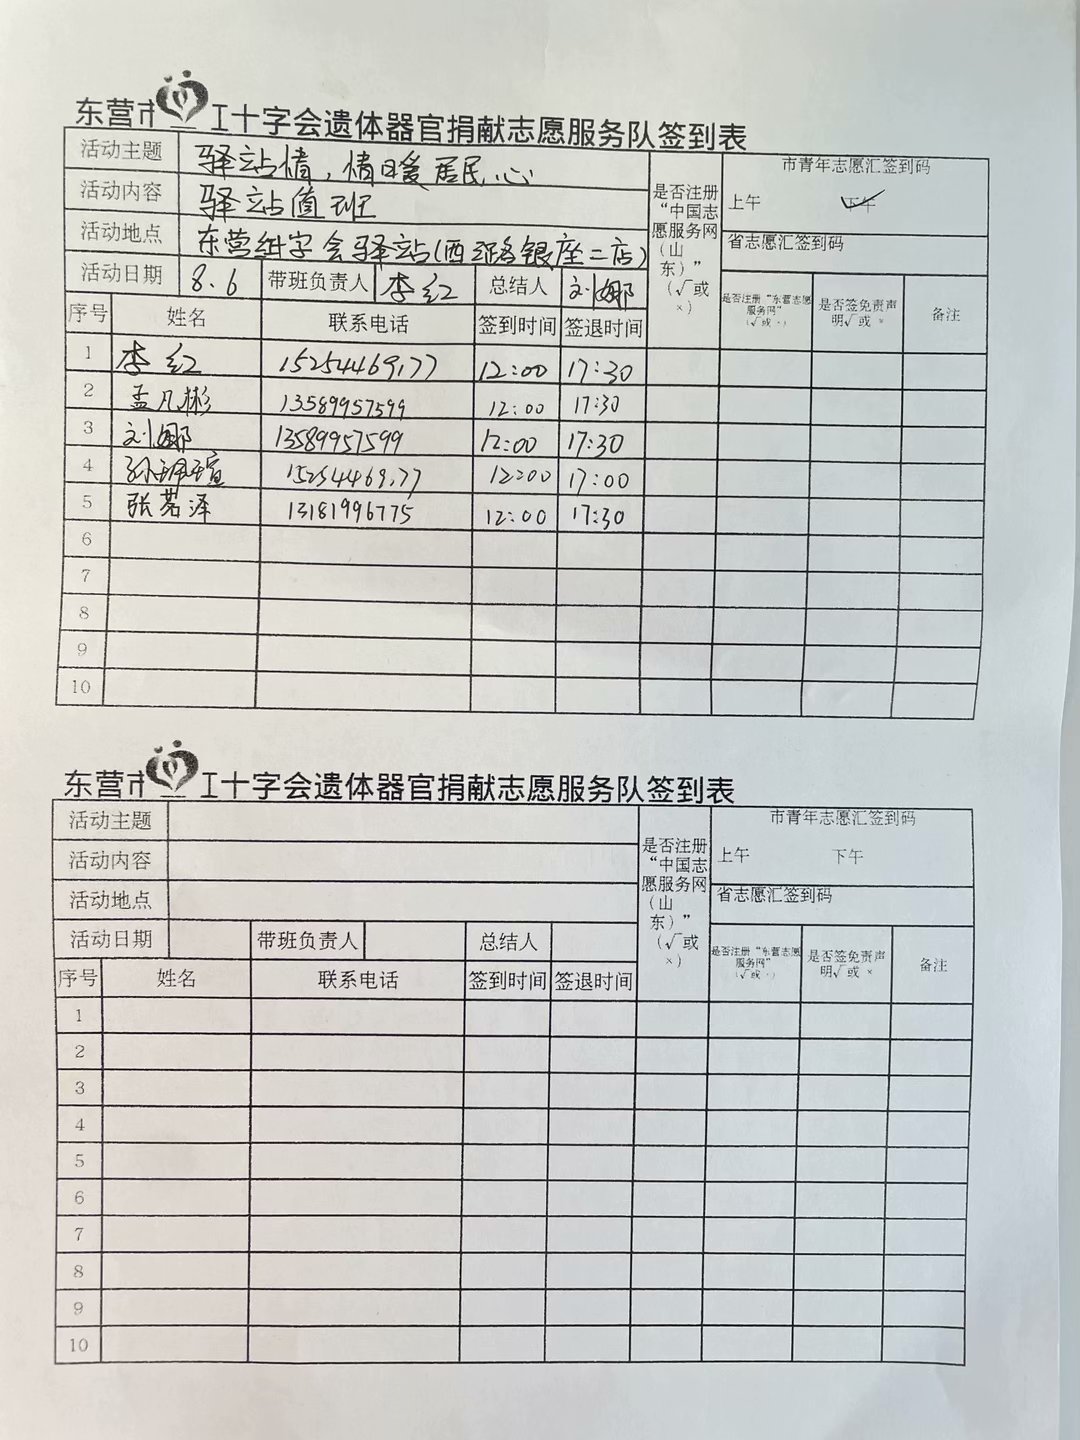 东营市红十字会遗体器官捐献志愿服务队签到表
活动主题 驿站情，情暖居民心
活动内容 驿站值班
活动地点 东营红十字会驿站(西路银座二店)
活动日期 8.6 带班负责人 李红 总结人 刘娜
是否注册“中国志愿服务网（山东）”（√或×）
市青年志愿汇签到码
上午 下午
省志愿汇签到码
序号 姓名 联系电话 签到时间 签退时间 是否注册“东营志愿服务网”（√或×） 是否签免责声明√或× 备注
1 李红 15254469177 12:00 17:30
2 孟凡彬 13589957599 12:00 17:30
3 刘娜 13589957599 12:00 17:30
4 孙瑄 15254469177 12:00 17:00
5 张茗泽 13181996775 12:00 17:30
6
7
8
9
10
东营市红十字会遗体器官捐献志愿服务队签到表
活动主题
活动内容
活动地点
活动日期 带班负责人 总结人
是否注册“中国志愿服务网（山东）”（√或×）
市青年志愿汇签到码
上午 下午
省志愿汇签到码
序号 姓名 联系电话 签到时间 签退时间 是否注册“东营志愿服务网”（√或×） 是否签免责声明√或× 备注
1
2
3
4
5
6
7
8
9
10